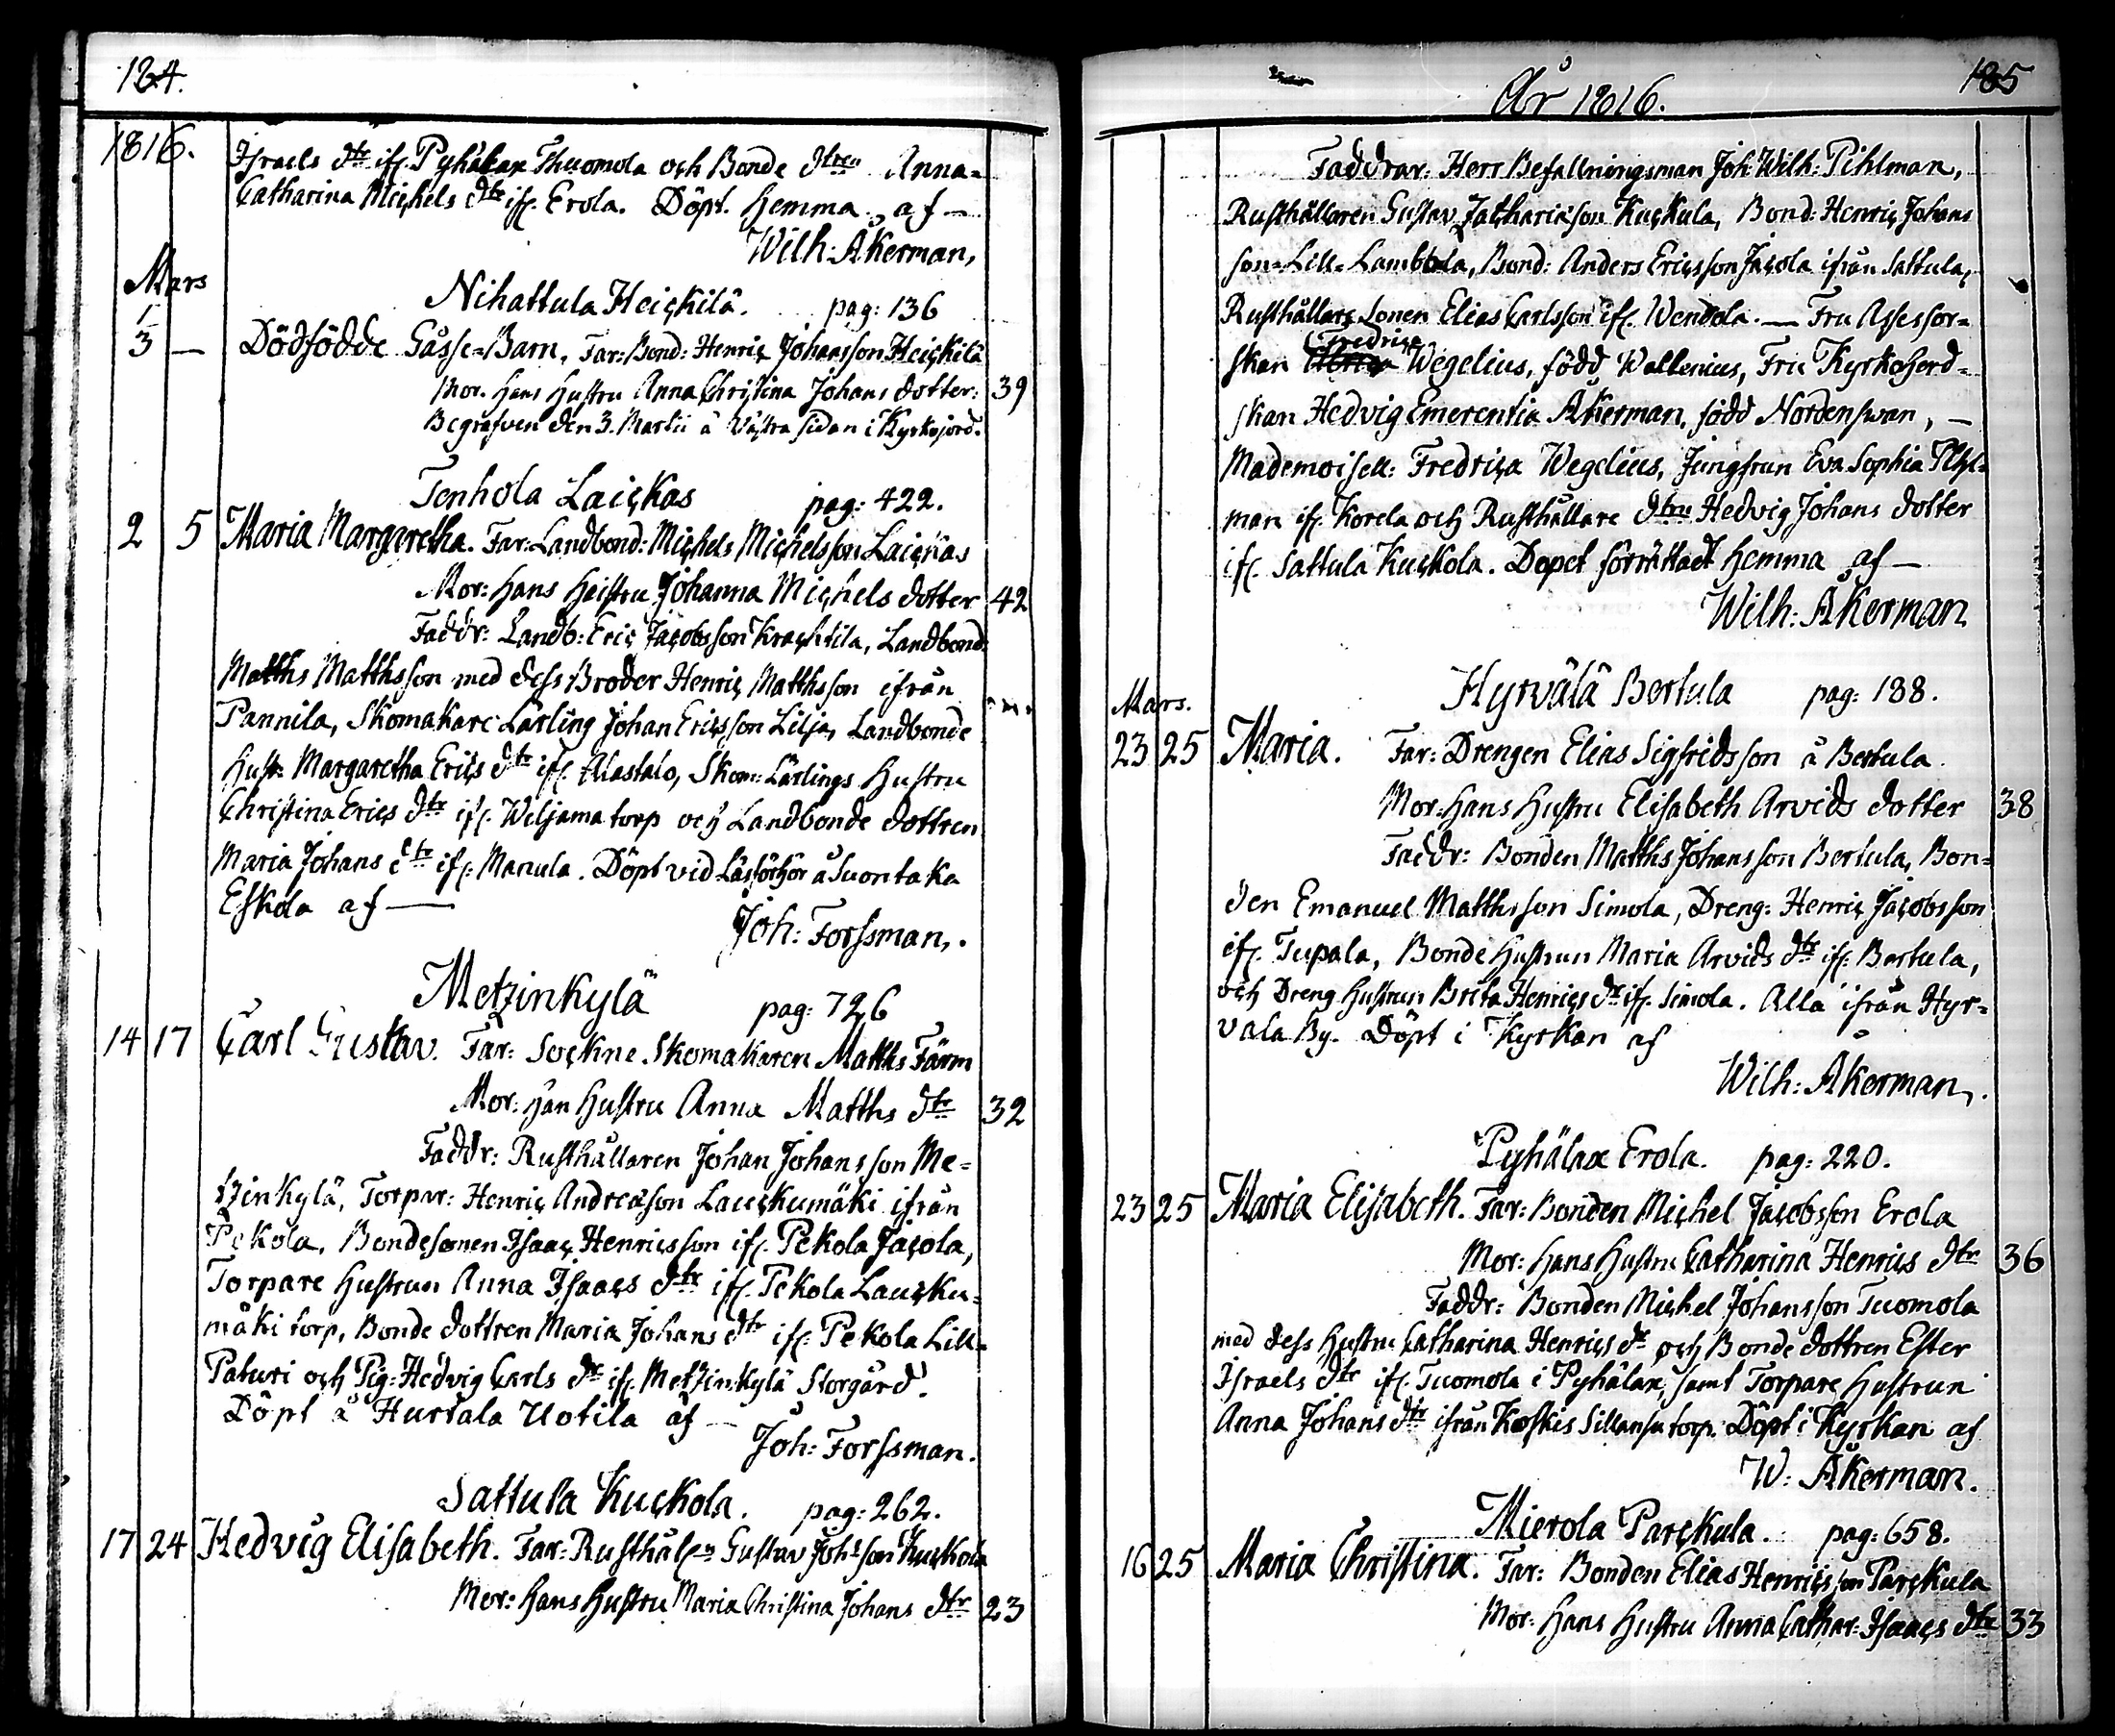 124.
1816. Israels dtr ifr. Pyhälax Thuomola och Bonde dtren Anna=
Catharina Michels dtr ifr. Erola. Döpt. hemma, af —
Wilh: Åkerman,
Mars
Nihattula Heickilä. pag: 136
1/3 — Dödfödde Gåsse=Barn, Far: Bond: Henric Johansson Heickilä
Mor. hans Hustru Anna Christina Johans dotter: 39
Begrafven den 3. Martii å Västra sidan i Kyrkojord.
Tenhola Laickas pag: 422.
2 5 Maria Margaretha. Far: Landbond: Michels Michelsson Laickas
Mor: hans Hustru Johanna Michels dotter 42
Faddr: Landb: Eric Jacobsson Krachtila, Landbond:
Matths Matthsson med dess Broder Henric Matthsson ifrån
Pannila, Skomakare Lärling Johan Ericsson Lilja, Landbonde
Hustr: Margaretha Erics dtr ifr. Alastalo, Skom: Lärlings Hustru
Christina Erics dtr ifr. Weljama torp och Landbonde dottren
Maria Johans dtr ifr. Manula. Döpt vid Läsförhör å Suontaka
Eskola af —
Joh: Forssman,.
Metzinkylä pag: 726
14 17 Carl Gustav. Far: Sockne Skomakaren Matths Färm
Mor: han Hustru Anna Matths dtr 32
Faddr: Rusthållaren Johan Johansson Me=
tzinkylä, Torpar: Henric Andreasson Lauckumäki ifrån
Pekola, Bondesonen Isaac Henricsson ifr. Pekola Jacola,
Torpare Hustrun Anna Isaacs dtr ifr. Pekola Laucku=
mäki torp, Bonde dottren Maria Johans dtr ifr. Pekola Lill=
Paturi och Pig: Hedvig Carls dtr ifr. Metzinkylä Storgård.
Döpt å Hurtala Uotila af —
Joh: Forssman.
Sattula Kuckola. pag: 262.
17 24 Hedvig Elisabeth. Far: Rusthåln Gustav Johsson Kuckola
Mor: hans Hustru Maria Christina Johans dtr 23
År 1816. 125
Faddrar: Herr Befallningsman Joh: Wilh: Pihlman,
Rusthållaren Gustav Zachariæson Kuckula, Bond: Henric Johans
son=Lill=Lambbola, Bond: Anders Ericsson Jacola ifrån Sattula,
Rusthållars Sonen Elias Carlsson ifr. Wendola. — Fru Assessor=
skan Fredrica Wegelius, född Wallenius, Fru Kyrkoherd=
skan Hedvig Emerentia Åkerman, född Nordenswan, —
Mademoisell: Fredrica Wegelius, Jungfrun Eva Sophia Pihl=
man ifr. Korela och Rusthållare dtren Hedvig Johans dotter
ifr. Sattula Kuckola. Dopet förrättadt hemma af —
Wilh: Åkerman
Hyrvälä Bertula pag: 188.
Mars.
23 25 Maria. Far: Drengen Elias Sigfridsson å Bertula.
Mor: hans Hustru Elisabeth Arvids dotter 38
Faddr: Bonden Matths Johansson Bertula, Bon=
den Emanuel Matthsson Simola, Dreng: Henric Jacobsson
ifr. Tupala, Bonde Hustrun Maria Arvids dtr ifr. Bertula,
och Dreng Hustrun Brita Henrics dtr ifr. Simola. Alla ifrån Hyr=
vala By. Döpt i Kyrkan af
Wilh: Åkerman,.
Pyhälax Erola. pag: 220.
23 25 Maria Elisabeth. Far: Bonden Michel Jacobsson Erola
Mor: hans Hustru Catharina Henrics dtr 36
Faddr: Bonden Michel Johansson Tuomola
med dess Hustru Catharina Henrics dr och Bonde dottren Ester
Israels dtr ifr. Tuomola i Pyhälax, samt Torpare Hustrun
Anna Johans dtr ifrån Koskis Sillansu torp. Döpt i Kyrkan af
W: Åkerman.
Mierola Parckula. pag: 658.
16 25 Maria Christina. Far: Bonden Elias Henricsson Parckula
Mor: Hans Hustru Anna Cathar: Isaacs dtr 33